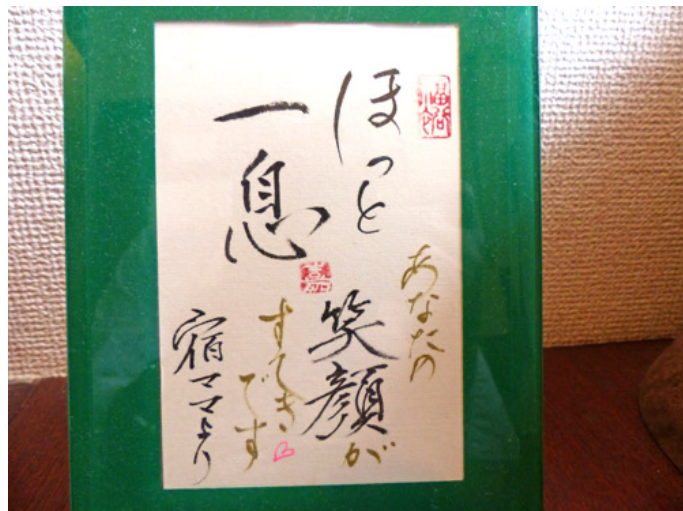 ほっと
一息
あなたの
笑顔が
すてき
です
宿ママより